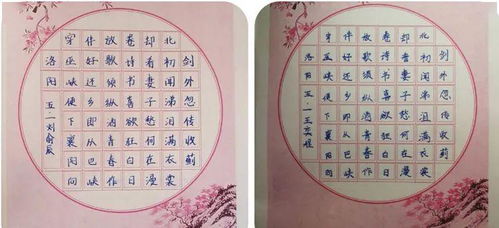 剑外忽传收蓟
北初闻涕泪满衣裳
却看妻子愁何在漫
卷诗书喜欲狂白日
放歌须纵酒青春作
伴好还乡即从巴峡
穿巫峡便下襄阳向
洛阳 五一刘俞辰
剑外忽传收蓟
北初闻涕泪满衣裳
却看妻子愁何在漫
卷诗书喜欲狂白日
放歌须纵酒青春作
伴好还乡即从巴峡
穿巫峡便下襄阳向
洛阳 五一王